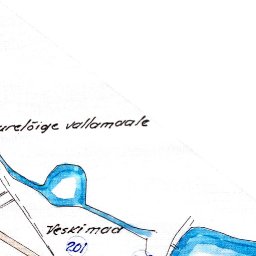 urelõige vallamaale
Veskimaa
201